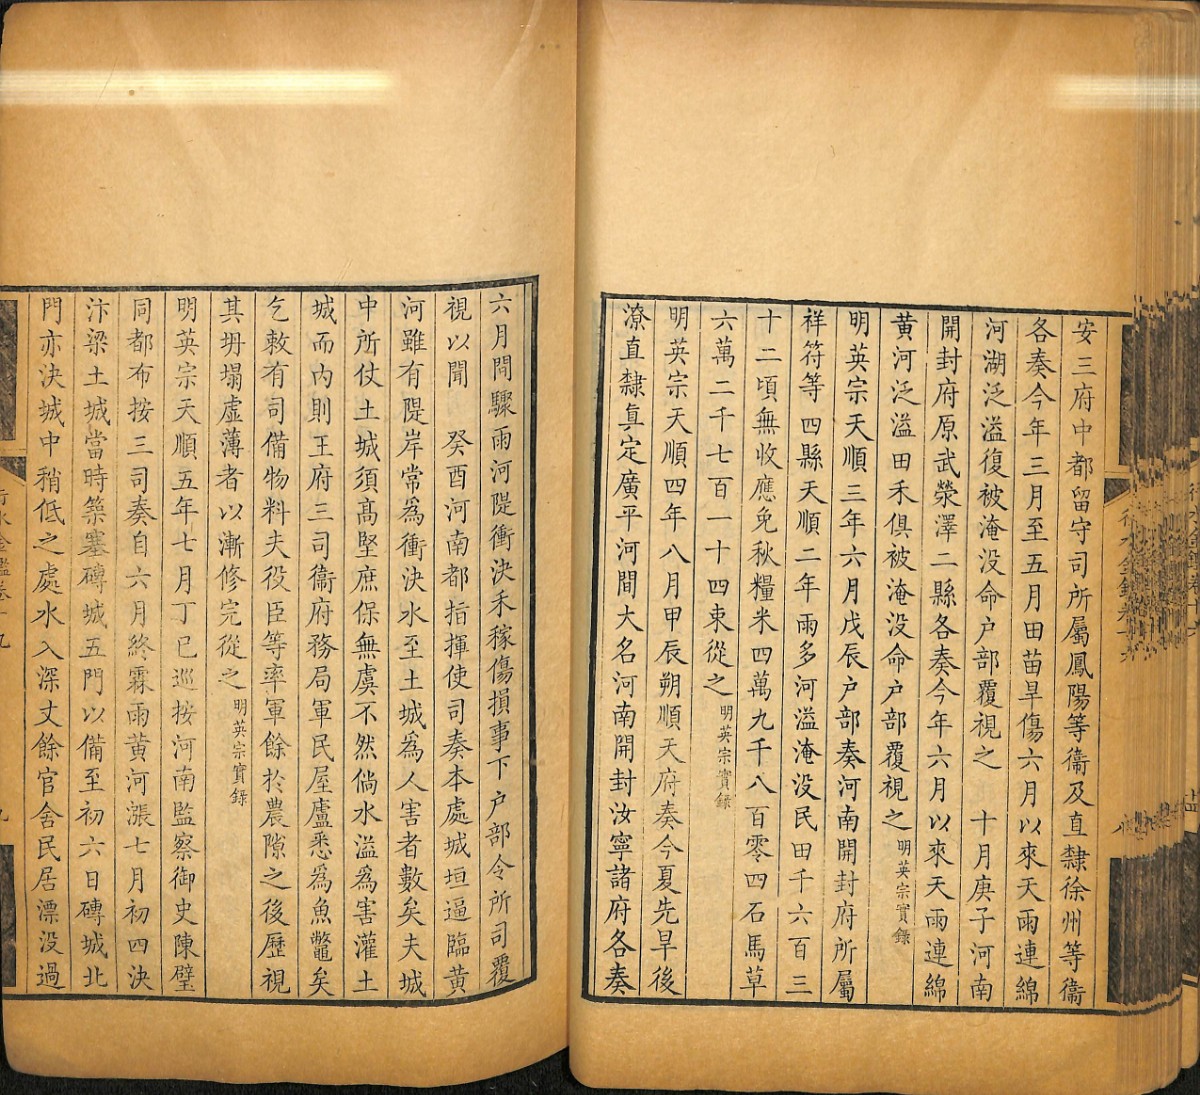 安三府中都留守司所屬鳳陽等衞及直隸徐州等衞
各奏今年三月至五月田苗旱傷六月以來天雨連綿
河湖泛溢復被淹没命户部覆視之　十月庚子河南
開封府原武滎澤二縣各奏今年六月以來天雨連綿
黄河泛溢田禾俱被淹没命户部覆視之明英宗實錄
明英宗天順三年六月戊辰户部奏河南開封府所屬
祥符等四縣天順二年雨多河溢淹没民田千六百三
十二頃無收應免秋糧米四萬九千八百零四石馬草
六萬二千七百一十四束從之明英宗實錄
明英宗天順四年八月甲辰朔順天府奏今夏先旱後
潦直隸真定廣平河間大名河南開封汝寧諸府各奏
六月間驟雨河隄衝決禾稼傷損事下户部令所司覆
視以聞　癸酉河南都指揮使司奏本處城垣逼臨黄
河雖有隄岸常爲衝決水至土城爲人害者數矣夫城
中所仗土城須高堅庶保無虞不然倘水溢爲害灌土
城而内則王府三司衞府務局軍民屋廬悉爲魚鼈矣
乞敕有司備物料夫役臣等率軍餘於農隙之後歷視
其坍塌虚薄者以漸修完從之明英宗實錄
明英宗天順五年七月丁巳巡按河南監察御史陳璧
同都布按三司奏自六月終霖雨黄河漲七月初四決
汴梁土城當時築塞磚城五門以備至初六日磚城北
門亦決城中稍低之處水入深丈餘官舍民居漂没過
行水金鑑卷十九
九